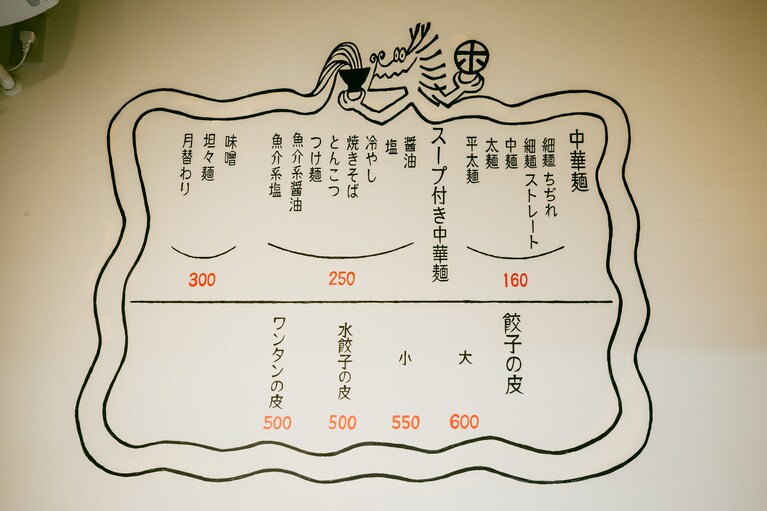 ホ
中華麺
細麺 ちぢれ
細麺 ストレート
中麺
太麺
平太麺
160
スープ付き中華麺
醤油
塩
冷やし
焼きそば
とんこつ
つけ麺
魚介系醤油
魚介系塩
250
味噌
坦々麺
月替わり
300
餃子の皮
大
600
小
550
水餃子の皮
500
ワンタンの皮
500